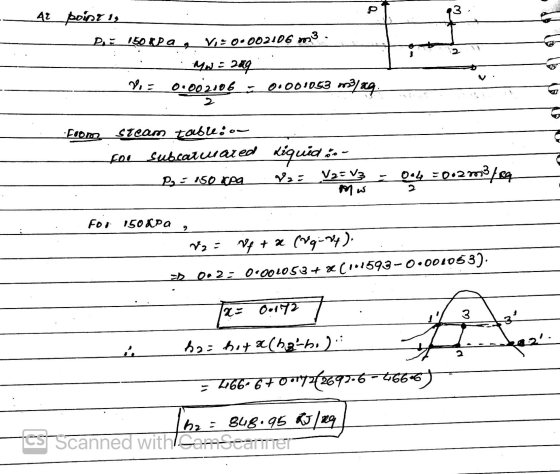 At point 1,
P₁ = 150 kPa, V₁ = 0.002106 m³.
Mw = 2kg
v₁ = 0.002106 / 2 = 0.001053 m³/kg.
P
3
1
2
v
From steam table:-
For subsaturated liquid:-
P₂ = 150 kpa v₂ = V₂=V₃ / Mw = 0.4 / 2 = 0.2 m³/kg
For 150kPa,
v₂ = vf + x (vg-vf).
⇒ 0.2 = 0.001053 + x (1.1593 - 0.001053).
x = 0.172
∴ h₂ = h₁ + x (h₂'-h₁).
= 466.6 + 0.172 (2692.6 - 466.6)
h₂ = 848.95 kJ/kg
1' 3 3'
1 2 2'
CS Scanned with CamScanner